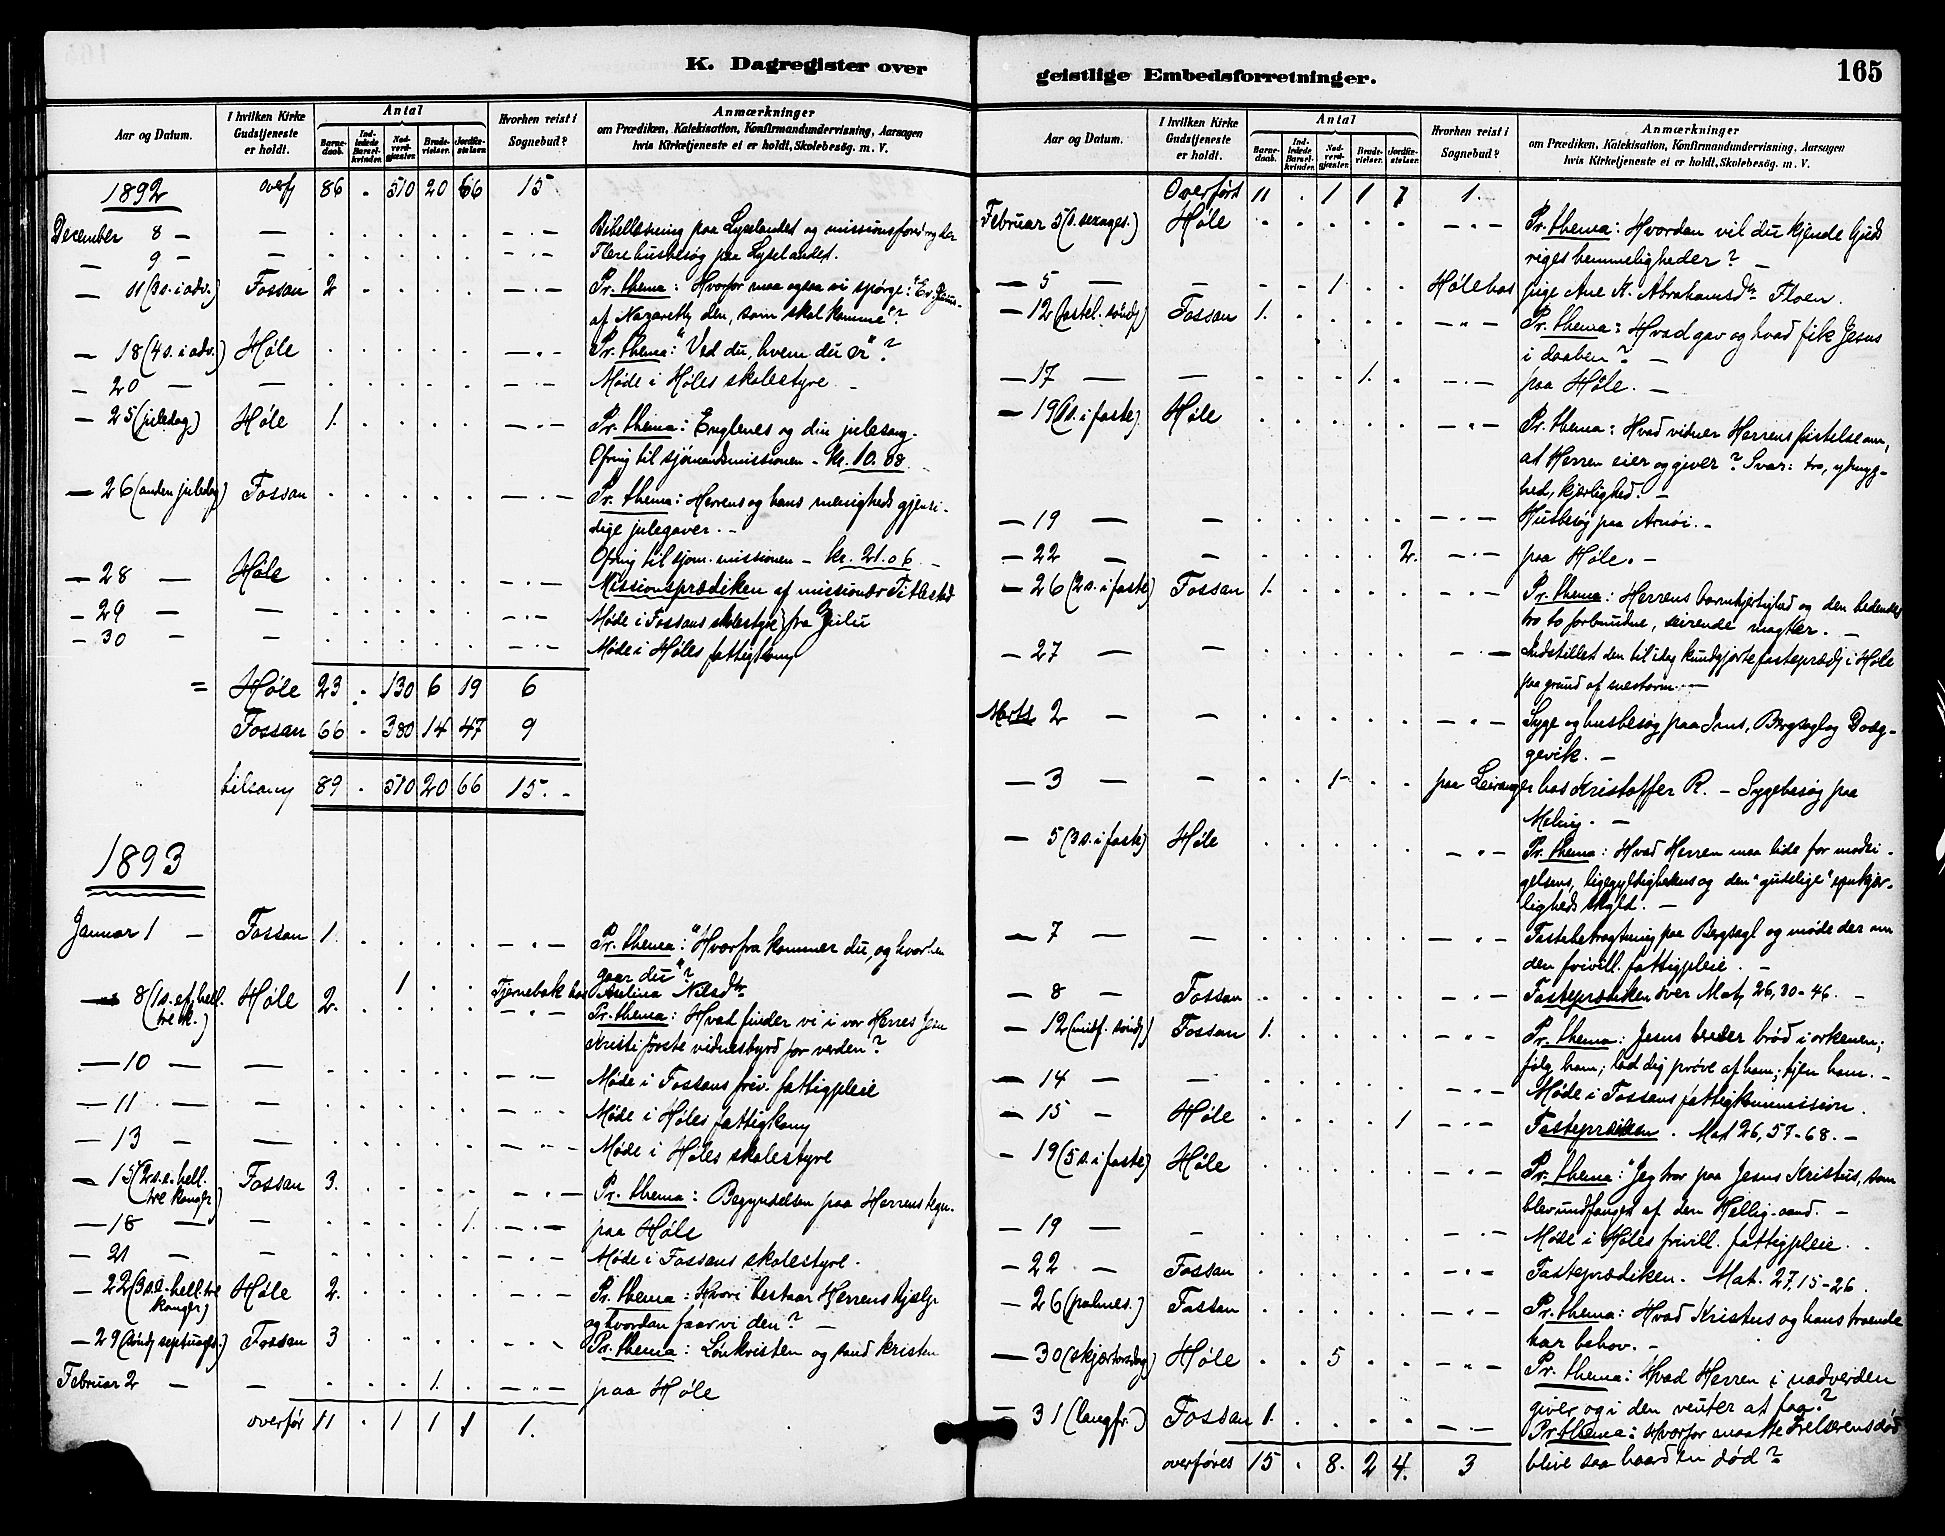 K. Dagregister over
Aar og Datum.
I hvilken Kirke Gudstjeneste er holdt.
Antal
Barnedaab.
Indledede Barselkvinder.
Nadverdgjæster.
Brudevielser.
Jordfæstelser.
Hvorhen reist i Sognebud?
Anmærkninger
om Prædiken, Katekisation, Konfirmandundervisning, Aarsagen
hvis Kirketjeneste ei er holdt, Skolebesög. m. V.
1892 overf 86 . 510 20 66 15
December 8 — — Bibellæsning paa Lyselandet og missionsforedrag der
— 9 — — Flere husbesøg paa Lyselandet.
— 11 (3 s. i adv.) Fossan 2 Pr. thema: Hvorfor maa ogsaa vi spørge: "Er Jesus
af Nazareth den, som skal komme"?
— 18 (4 s. i adv.) Høle Pr. thema: "Ved du, hvem du er"?
— 20 — — Møde i Høles skolestyre —
— 25 (juledag) Høle 1. Pr. thema: Englenes og din julesang.
Ofring til sjømandsmissionen — kr. 10.08
— 26 (anden juledag) Fossan Pr. thema: Herrens og hans menigheds gjensi-
dige julegaver. —
Ofring til sjøm. missionen — kr. 21.06 —
— 28 — Høle Missionsprædiken af missionær Titlestad
— 29 — — Møde i Fossans skolestyre) fra Zulu
— 30 — — Møde i Høles fattigkom
= Høle 23 . 130 6 19 6
Fossan 66 . 380 14 47 9
tilsam 89 . 510 20 66 15. -
1893
Januar 1 — Fossan 1. Pr. thema: "Hvorfra kommer du, og hvorhen
gaar du"?
— 8 (1 s. ef. hell. tre k.) Høle 2. 1 Tjernebak hos Aselina Nilsdtr
Pr. thema: Hvad finder vi i vor Herres Jesu
Kristi første vidnesbyrd for verden?
— 10 — — Møde i Fossans friv. fattigpleie
— 11 — — Møde i Høles fattigkom
— 13 — — Møde i Høles skolestyre
— 15 (2 s. e. hell. tre konger) Fossan 3. Pr. thema: Begyndelsen paa Herrens tegn.
— 18 — — 1. paa Høle
— 21 — — Møde i Fossans skolestyre.
— 22 (3 s. e. hell. tre konger) Høle 2. Pr. thema: Hvori bestaar Herrens hjælp
og hvordan faar vi den? —
— 29 (sønd septuages.) Fossan 3 Pr. thema: Lønkristen og sand kristen
Februar 2 — — 1. paa Høle
overfør 11 . 1 1 1 1.
geistlige Embedsforretninger.
165
Aar og Datum.
I hvilken Kirke Gudstjeneste er holdt.
Antal
Barnedaab.
Indledede Barselkvinder.
Nadverdgjæster.
Brudevielser.
Jordfæstelser.
Hvorhen reist i Sognebud?
Anmærkninger
om Prædiken, Katekisation, Konfirmandundervisning, Aarsagen
hvis Kirketjeneste ei er holdt, Skolebesög. m. V.
Overført 11 . 1 1 1 1.
Februar 5 (s. sexages.) Høle Pr. thema: Hvordan vil du kjende Guds
riges hemmeligheder? —
— 5 — — 1. Høle hos pige Ane K. Abrahamsdtr Floen.
— 12 (fastel. sønd) Fossan 1. Pr. thema: Hvad gav og hvad fik Jesus
i daaben? —
— 17 — — 1. paa Høle. —
— 19 (1 s. i faste) Høle Pr. thema: Hvad vidner Herrens fristelse om,
at Herren eier og giver? Svar: tro, ydmyg-
hed, kjærlighed. —
— 19 — — Husbesøg paa Arnøi. —
— 22 — — 2. paa Høle. —
— 26 (2 s. i faste) Fossan 1. Pr. thema: Herrens barmhjertighed og den bedendes
tro to forbundne, seirende magter. —
— 27 — — Indstillet den til idag kundgjorte fasteprædk i Høle
paa grund af snestorm. —
Marts 2 — — Syge og husbesøg paa Ims, Bergsagl og Dreg-
gevik. —
— 3 — — 1 paa Leiranger hos Kristoffer R. — Sygebesøg paa
Meling. —
— 5 (3 s. i faste) Høle Pr. thema: Hvad Herren maa lide for modsi-
gelsens, ligegyldighedens og den "gudelige" egenkjær-
ligheds skyld. —
— 7 — — Fastebetragtning paa Bergsagl og møde der om
den frivill. fattigpleie. —
— 8 — Fossan Fasteprædiken over Mat, 26, 30-46. —
— 12 (midf. sønd) Fossan 1. Pr. thema: Jesus breder brød i ørkenen;
følg ham; lad dig prøve af ham; tjen ham. —
— 14 — — Møde i Fossans fattigkommission.
— 15 — Høle 1 Fasteprædiken. Mat 26, 57-68. —
— 19 (5 s. i faste) Høle Pr. thema: "Jeg tror paa Jesus Kristus, som
blev undfanget af den Hellig-aand. —
— 19 — — Møde i Høles frivill. fattigpleie.
— 22 — Fossan Fasteprædiken. Mat. 27, 15-26.
— 26 (palmes.) Fossan Pr. thema: Hvad Kristus og hans troende
har behov. —
— 30 (skjærtorsdag) Høle 5 Pr. thema: Hvad Herren i nadverden
giver og i den venter at faa?
— 31 (langfr.) Fossan 1. Pr. thema: Hvorfor maatte Frelserens død
overføres 15 . 8. 2 4. 3 blive saa haard en død?